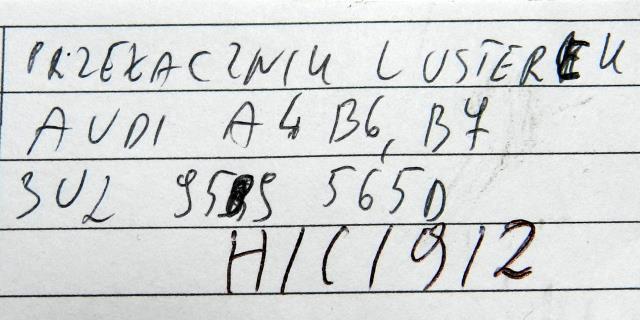 PRZEŁACZNIK LUSTEREK
AUDI A4 B6, B7
3U2 9599 565D
H/C/9/2